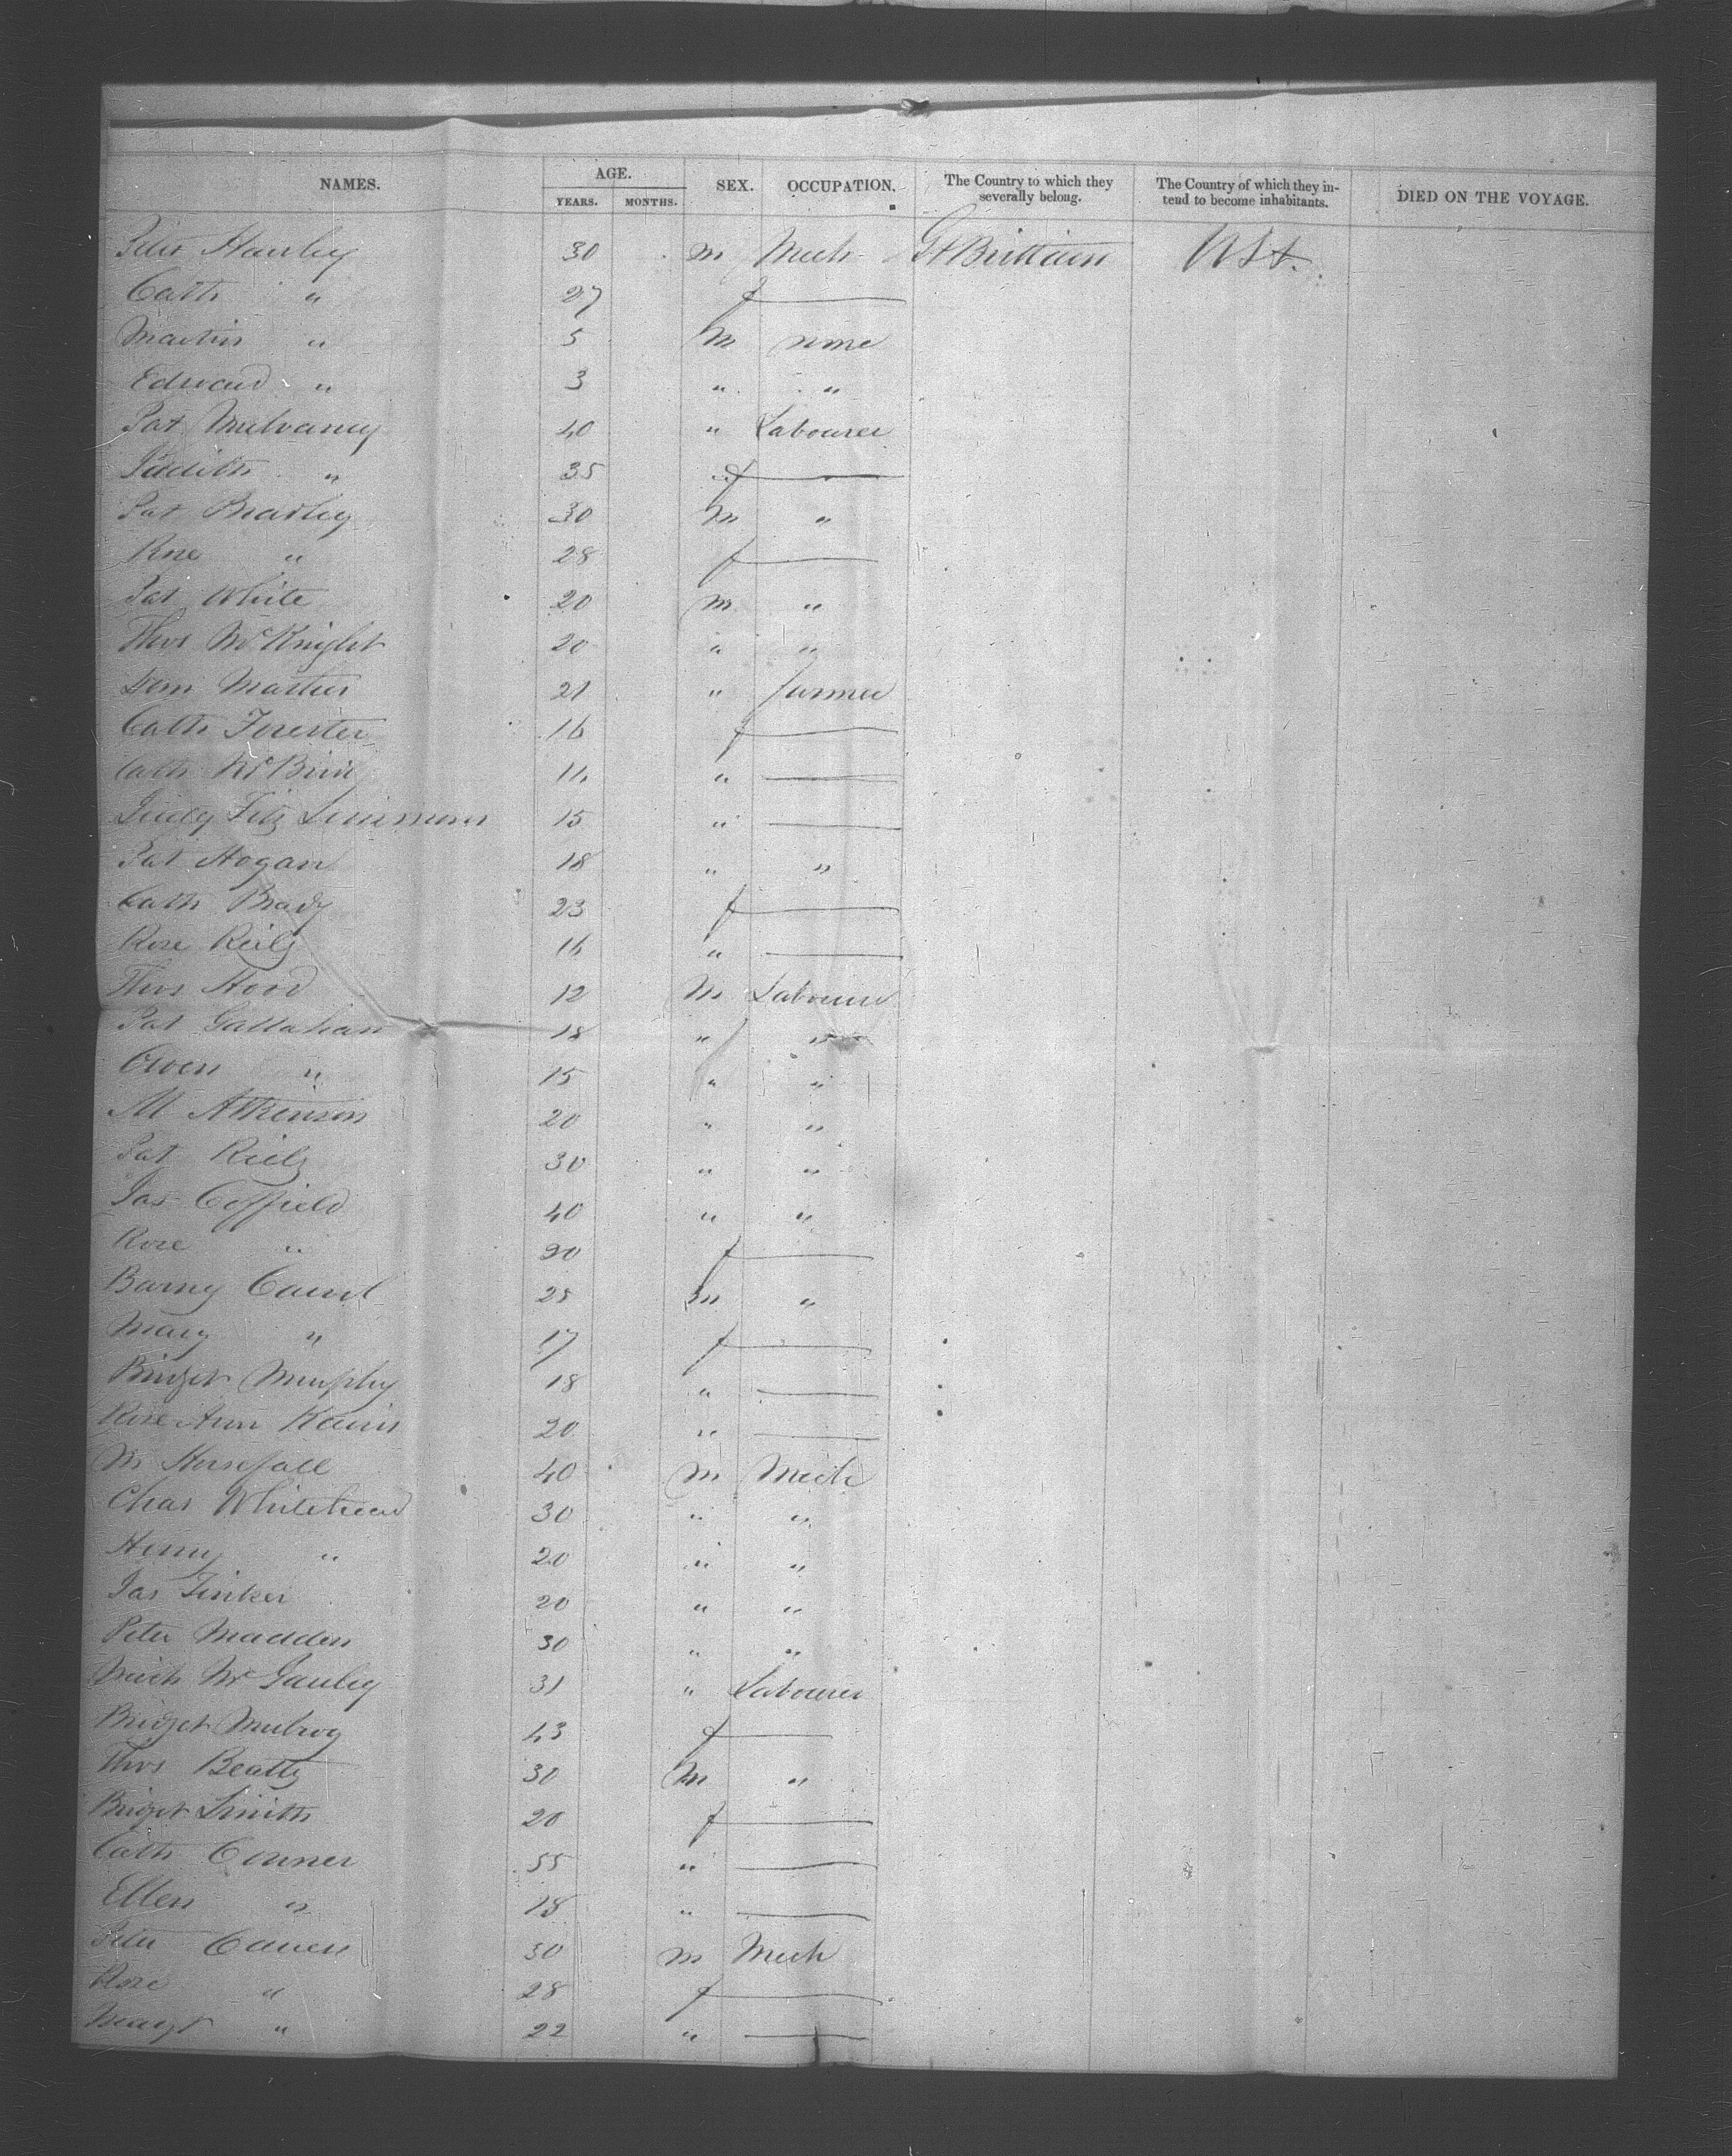 NAMES. AGE. SEX. OCCUPATION. The Country to which they severally belong. The Country of which they intend to become inhabitants. DIED ON THE VOYAGE.
YEARS. MONTHS.
Peter Hanley 30 m Mech Gt Brittain USA.
Cath " 27 f
Martin " 5 m none
Edward " 3 " "
Pat Mulvaney 40 " Labourer
Judith " 35 f
Pat Bradley 30 m "
Rose " 28 f
Pat White 20 m "
Thos McKnight 20 " "
Martin 21 " farmer
Cath Forester 16 f
Cath 11 "
Judy Fitz Simmons 15 "
Pat Hogan 18 " "
Cath Brady 23 f
Rose Reily 16 "
Thos Hood 12 m Labourer
Pat Gallahan 18 " "
Owen " 15 " "
M Atkinson 20 " "
Pat Reily 30 " "
Jas Coffield 40 " "
Rose " f
Barny 25 m "
Mary " 17 f
Bridget Murphy 18 "
Rose Ann 20 "
Horsfall 40 m Mech
Chas Whitehead 30 " "
Henry " 20 " "
Jas Tinker 20 " "
Peter Madden 30 " "
Mich 31 " Labourer
Bridget 43 f
Thos Beatty 30 m "
Bridget Smith 20 f
Cath Conner 55 "
Ellen " 18 "
Peter 30 m Mech
Rose " 28 f
Margt " 22 "